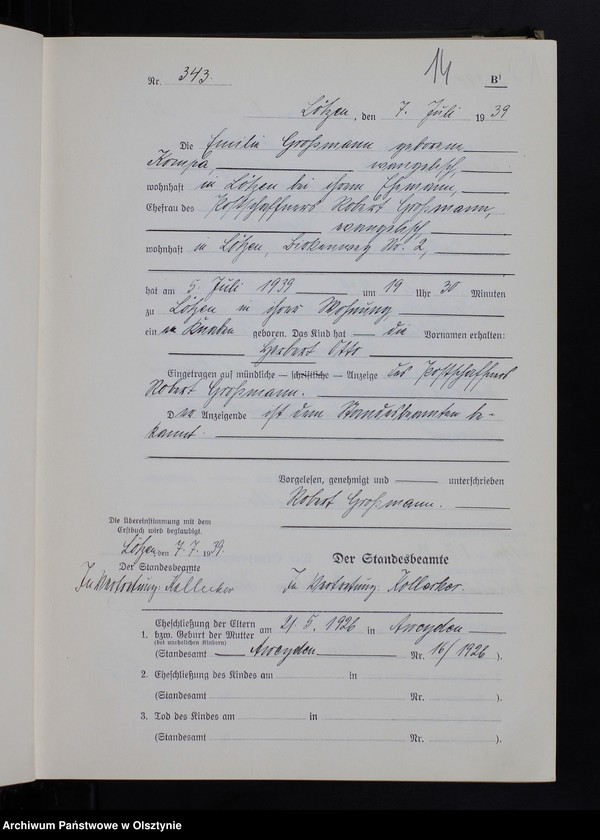 14
Nr. 343. B¹
Lötzen, den 7. Juli 1939
Die Emilie Großmann geborene
Kompa, evangelisch,
wohnhaft in Lötzen bei ihrem Ehemann,
Ehefrau des Postschaffners Robert Großmann,
evangelisch,
wohnhaft in Lötzen, Birkenweg Nr. 2,
hat am 5. Juli 1939 um 19 Uhr 30 Minuten
zu Lötzen in ihrer Wohnung
einen Knaben geboren. Das Kind hat — die Vornamen erhalten:
Herbert Otto
Eingetragen auf mündliche — schriftliche — Anzeige des Postschaffners
Robert Großmann.
Der Anzeigende ist dem Standesbeamten be-
kannt.
Vorgelesen, genehmigt und unterschrieben
Robert Großmann.
Die Übereinstimmung mit dem
Erstbuch wird beglaubigt.
Lötzen, den 7.7. 1939.
Der Standesbeamte
Der Standesbeamte
In Vertretung:
In Vertretung:
1. Eheschließung der Eltern
bzw. Geburt der Mutter am 21. 5. 1926 in Aweyden
(bei unehelichen Kindern)
(Standesamt Aweyden Nr. 16/1926).
2. Eheschließung des Kindes am in
(Standesamt Nr. ).
3. Tod des Kindes am in
(Standesamt Nr. ).
Archiwum Państwowe w Olsztynie